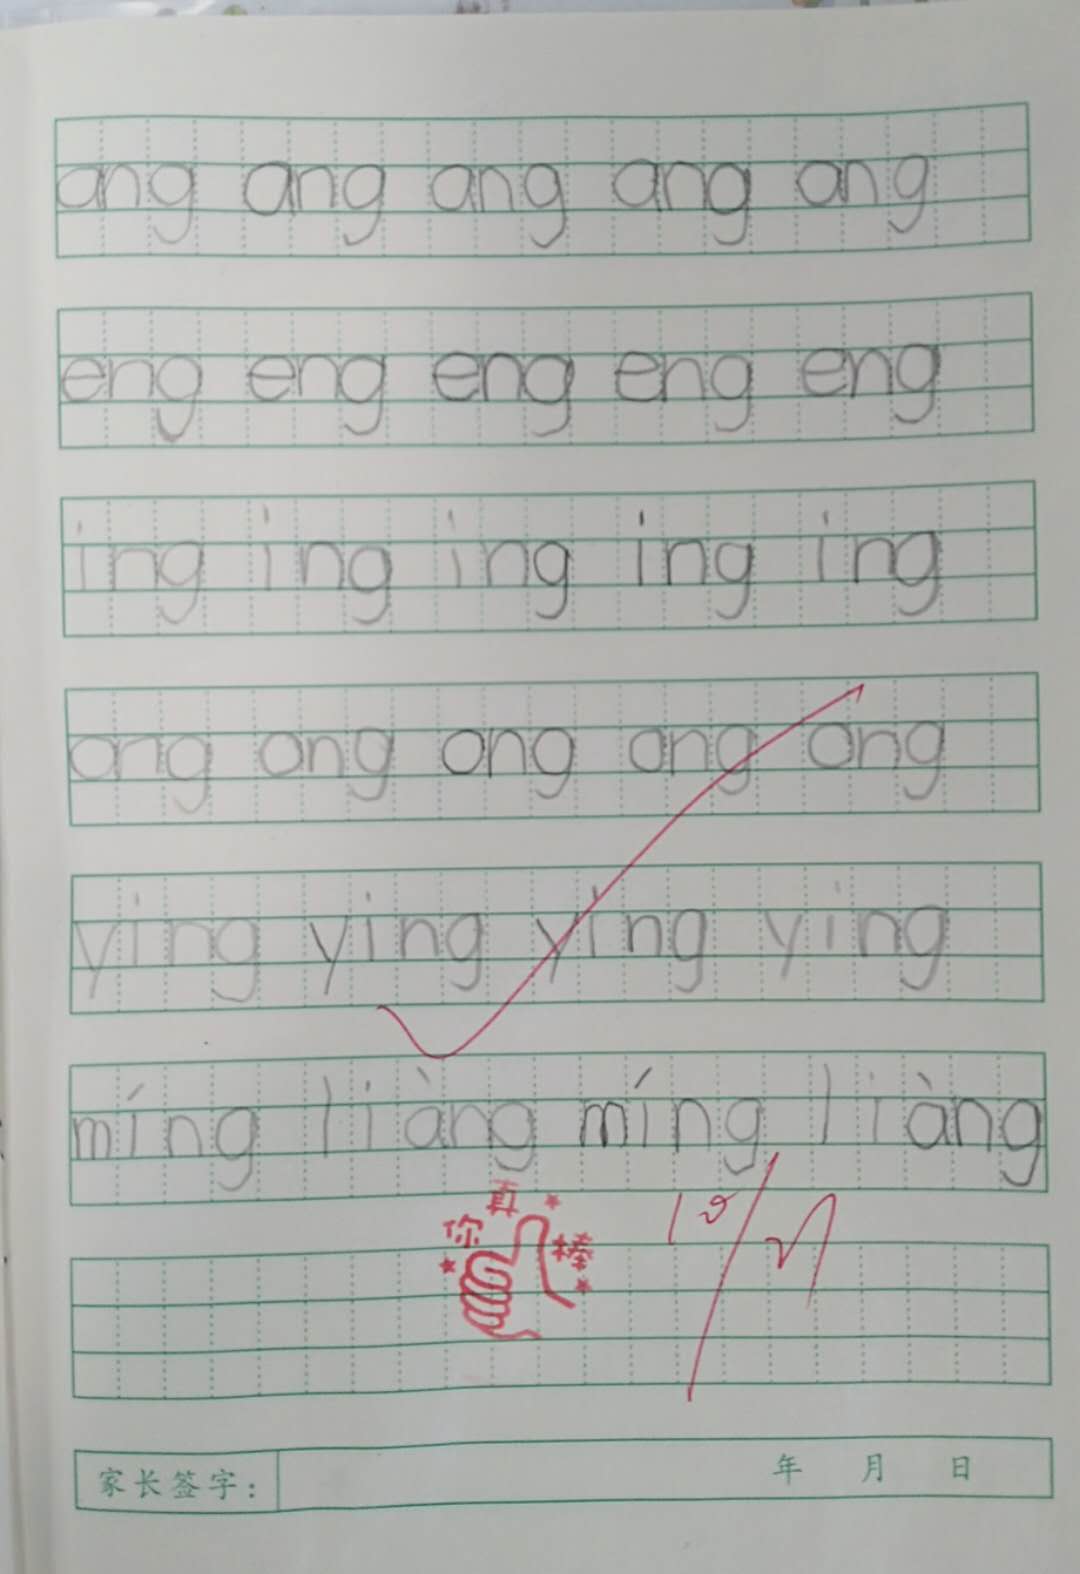 ang ang ang ang ang
eng eng eng eng eng
ing ing ing ing ing
ong ong ong ong ong
ying ying ying ying
míng liàng míng liàng
你真棒
家长签字: 年 月 日